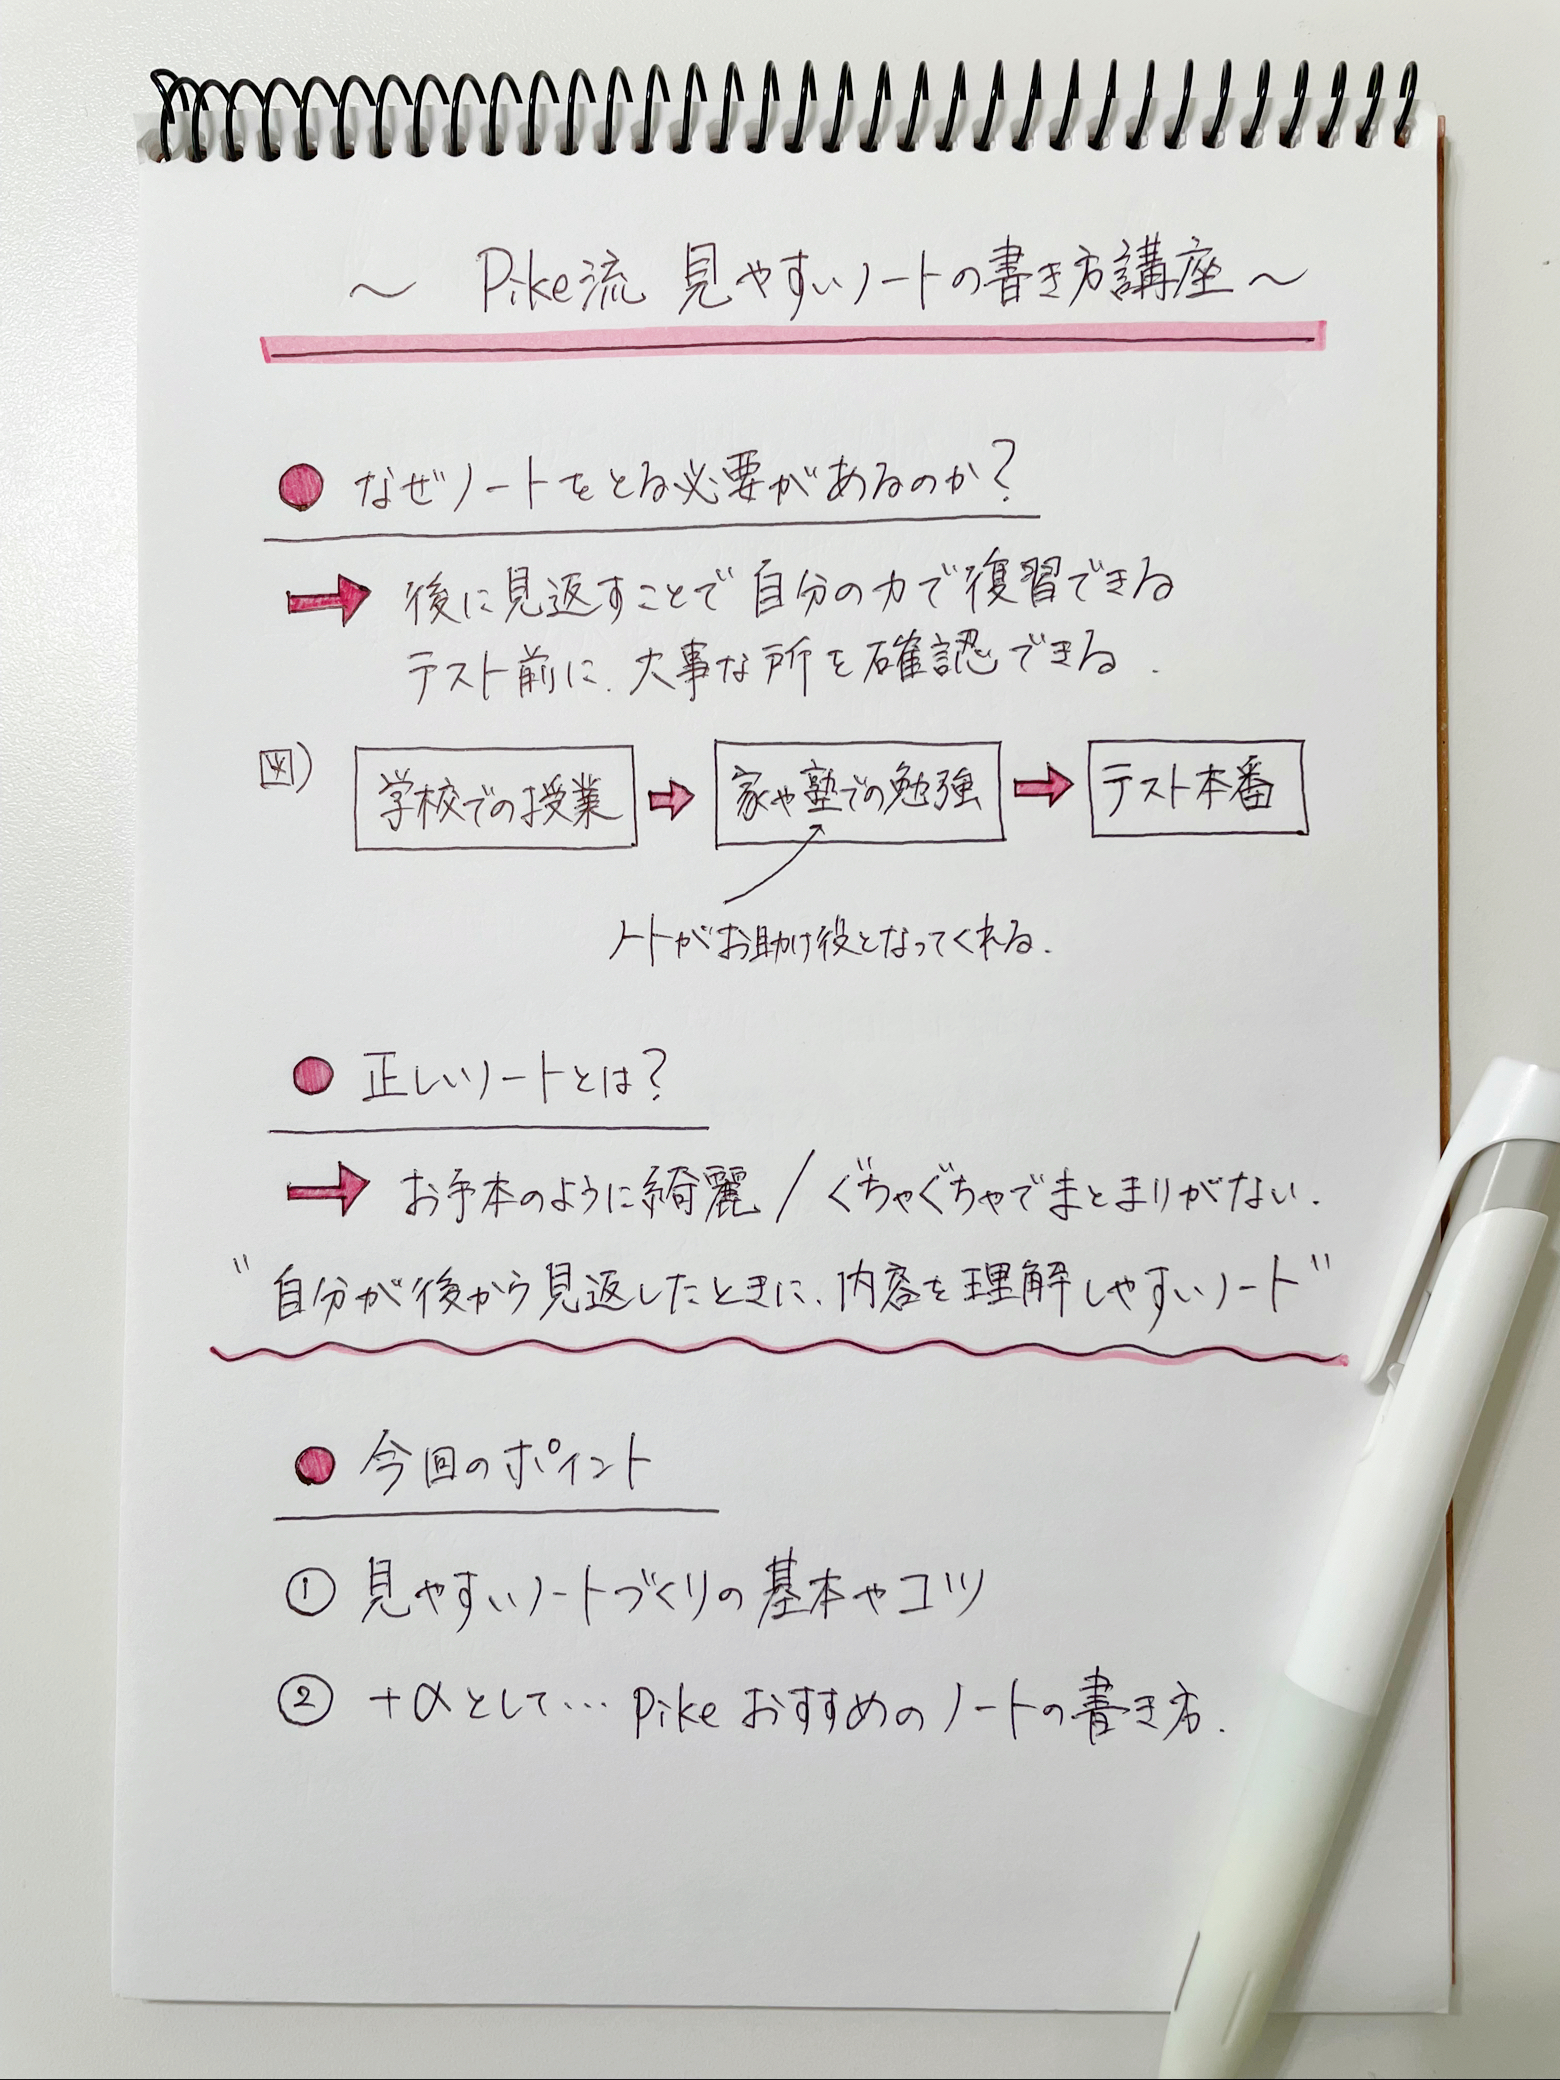 ～ Pike流 見やすいノートの書き方講座～
● なぜノートをとる必要があるのか？
➡ 後に見返すことで自分の力で復習できる
テスト前に、大事な所を確認できる．
図）
学校での授業 ➡ 家や塾での勉強 ➡ テスト本番
ノートがお助け役となってくれる．
● 正しいノートとは？
➡ お手本のように綺麗 / ぐちゃぐちゃでまとまりがない．
"自分が後から見返したときに、内容を理解しやすいノート"
● 今回のポイント
① 見やすいノートづくりの基本やコツ
② +αとして… Pike おすすめのノートの書き方．